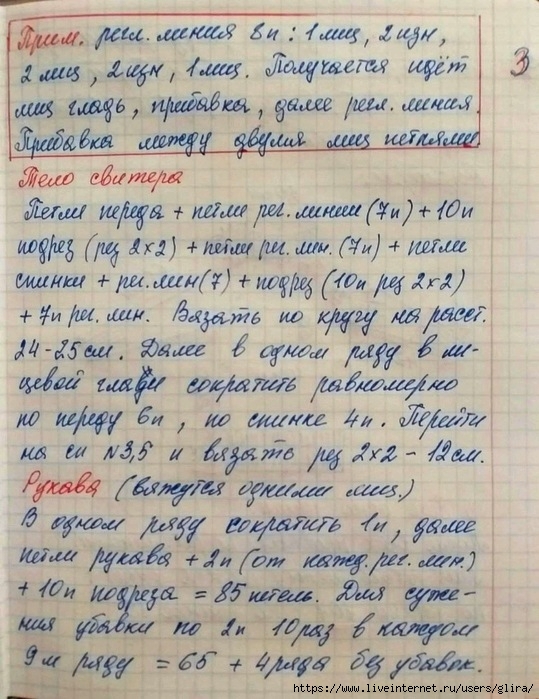 Прим. регл. линия 8п: 1 лиц, 2 изн,
2 лиц, 2 изн, 1 лиц. Получается идёт
лиц гладь, прибавка, далее регл. линия.
Прибавка между двумя лиц петлями
3
Тело свитера
Петли переда + петли рег. линии (7п) + 10п
подрез (рез 2x2) + петли рег. мин. (7п) + петли
спинки + рег. мин (7) + подрез (10п рез 2x2)
+ 7п рег. мин. Вязать по кругу на расст.
24-25 см. Далее в одном ряду в ли-
цевой глади сократить равномерно
по переду 6п, по спинке 4п. Перейти
на сп №3,5 и вязать рез 2x2 - 12 см.
Рукава (вяжутся одними лиц.)
В одном ряду сократить 1п, далее
петли рукава + 2п (от кажд. рег. мин.)
+ 10п подреза = 85 петель. Для суже-
ния убавки по 2п 10 раз в каждом
9м ряду = 65 + 4 ряда без убавок.
https://www.liveinternet.ru/users/glira/